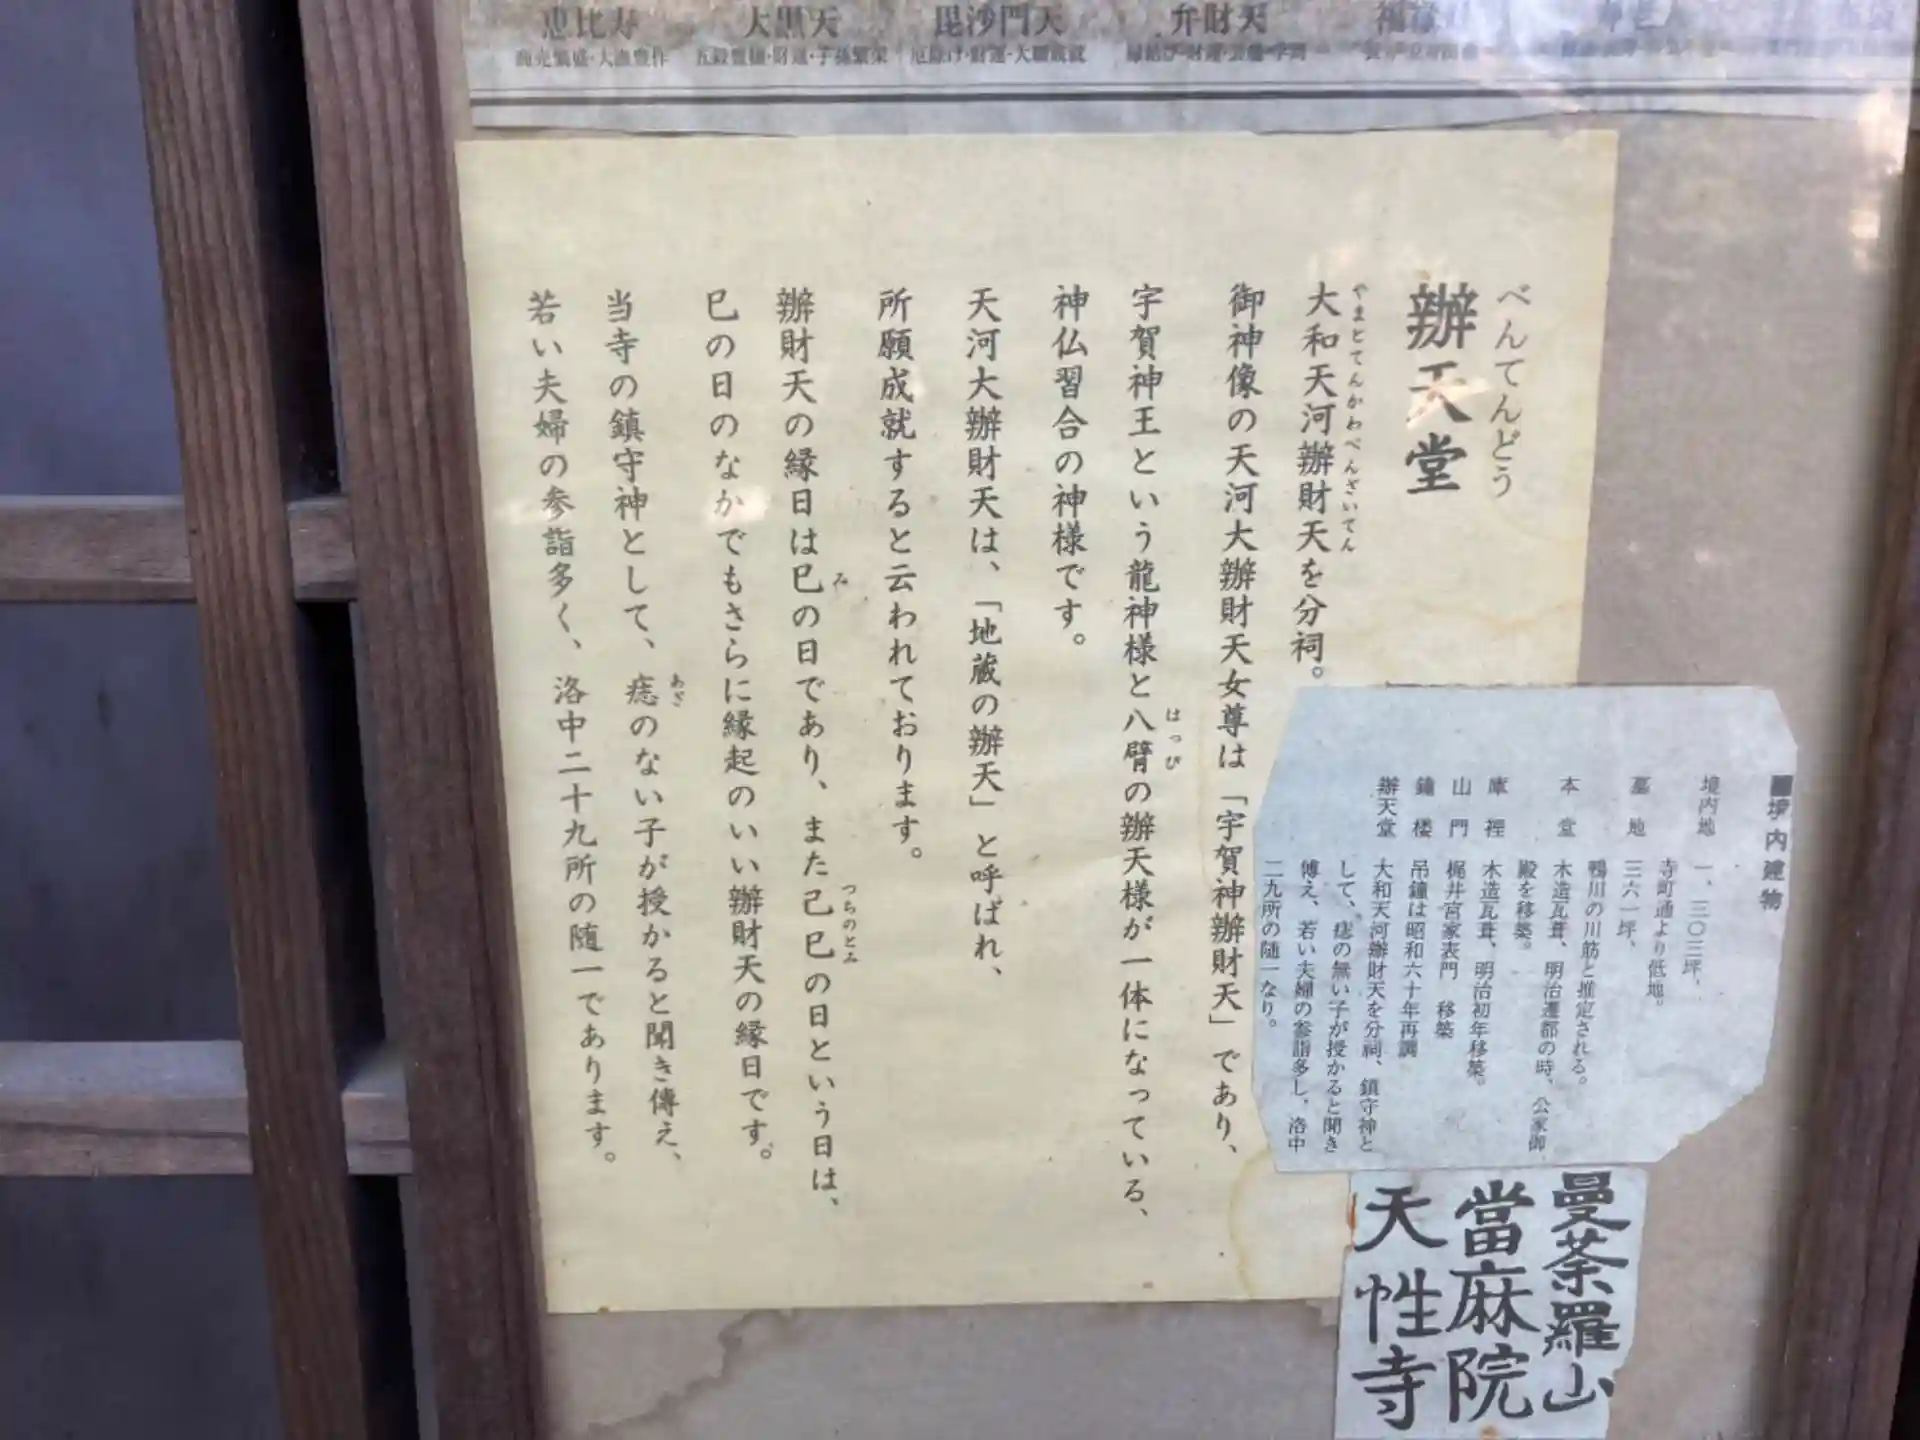 恵比寿
商売繁盛・大漁豊作
大黒天
五穀豊穣・財運・子孫繁栄
毘沙門天
厄除け・財運・大願成就
弁財天
縁結び・財運・芸能・学問
べんてんどう
辦天堂
やまとてんかわべんざいてん
大和天河辦財天を分祠。
御神像の天河大辦財天女尊は「宇賀神辦財天」であり、
はっぴ
宇賀神王という龍神様と八臂の辦天様が一体になっている、
神仏習合の神様です。
天河大辦財天は、「地蔵の辦天」と呼ばれ、
所願成就すると云われております。
み
つちのとみ
辦財天の縁日は巳の日であり、また己巳の日という日は、
巳の日のなかでもさらに縁起のいい辦財天の縁日です。
あざ
当寺の鎮守神として、痣のない子が授かると聞き傳え、
若い夫婦の参詣多く、洛中二十九所の随一であります。
■境内建物
境内地 一、三〇三坪、
寺町通より低地。
墓地 三六一坪、
鴨川の川筋と推定される。
本堂 木造瓦葺、明治遷都の時、公家御
殿を移築。
庫裡 木造瓦葺、明治初年移築。
山門 梶井宮家表門 移築
鐘楼 吊鐘は昭和六十年再調
辦天堂 大和天河辦財天を分祠、鎮守神と
して、痣の無い子が授かると聞き
傳え、若い夫婦の参詣多し、洛中
二九所の随一なり。
曼荼羅山
當麻院
天性寺